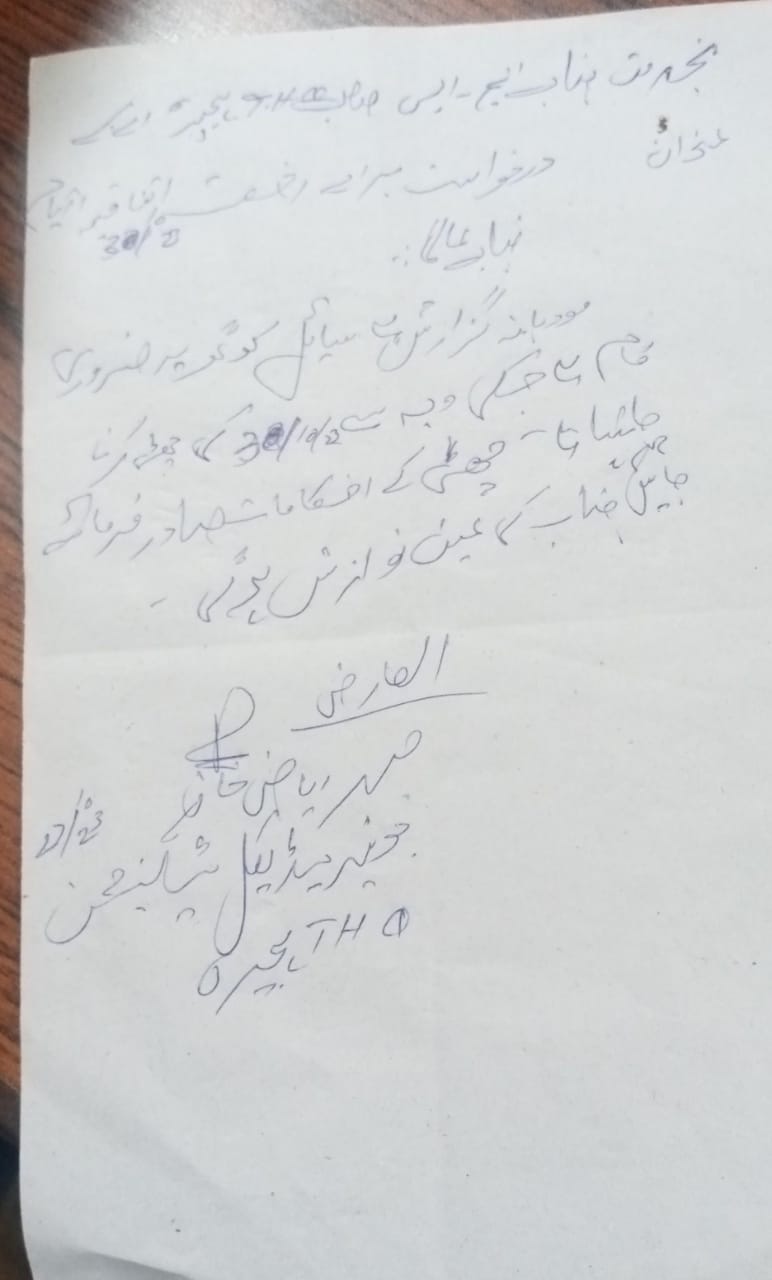 بخدمت جناب ایم۔ایس صاحب THQ ہجیرہ
عنوان درخواست برائے رخصت اتفاقیہ
30/10
جناب عالی!
مودبانہ گزارش ہے سائل کو گھر پہ ضروری
کام ہے جسکی وجہ سے 30/10/23 کی چھٹی کرنا
چاہتا ہے۔ چھٹی کے احکامات صادر فرمائے
جائیں جناب کی عین نوازش ہوگی۔
العارض
ریاض خان
جونیر میڈیکل ٹیکنیشن
THQ ہجیرہ